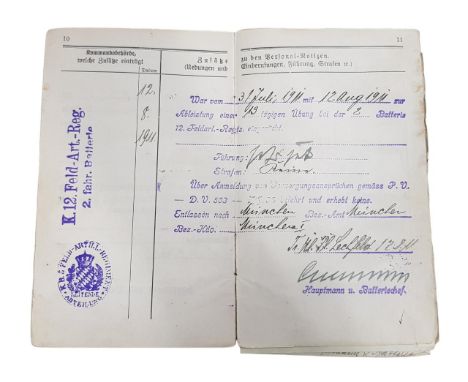 10
Kommandobehörde,
welche Zusätze einträgt
Datum
Zusätze
(Meldungen und
12.
8.
1911
K.12. Feld-Art.-Reg.
2. fahr. Batterie
11
zu den Personal-Notizen.
Einberufungen, Führung, Strafen etc.)
War vom 31 Juli 1911 mit 12 Aug 1911 zur
Ableistung einer 13 tägigen Übung bei der 2. Batterie
12. Feldart.-Regts.
Führung:
Strafen: Keine.
Über Anmeldung von Versorgungsansprüchen gemäss P. V.
D. V. 553 belehrt und erhebt keine.
Entlassen nach München Bez.-Amt München
Bez.-Kdo. München I
Lechfeld 12.8.11
Hauptmann u. Batteriechef.